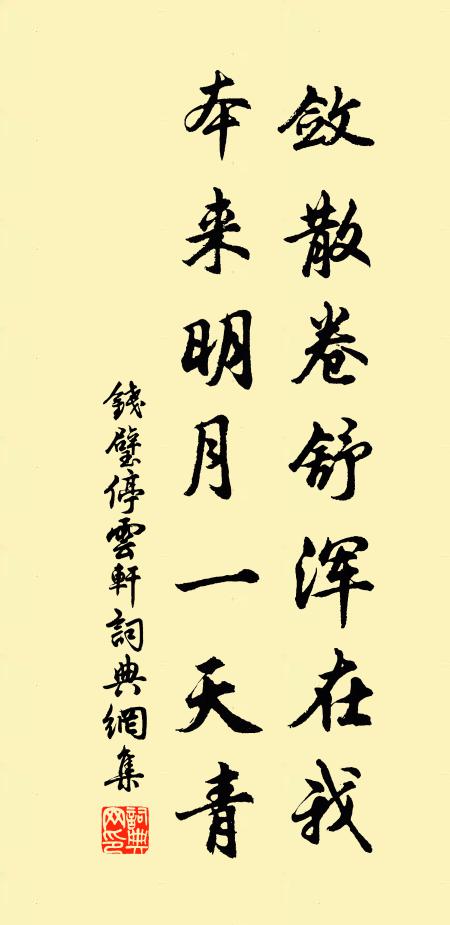 敛散卷舒浑在我
本来明月一天青
錢壁停雲軒詞典網集
詞典網印